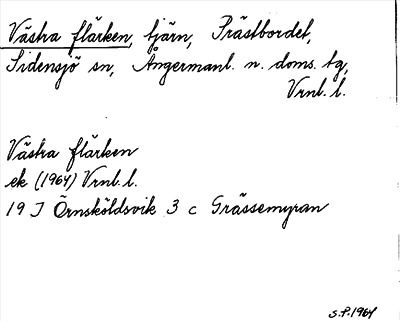 Västra flärken, tjärn, Prästbordet,
Sidensjö sn, Ångermanl. n. doms. tg,
Vrnl. l.
Västra flärken
ek (1964) Vrnl. l.
19 J Örnsköldsvik 3 c Grässemyran
S.P. 1964